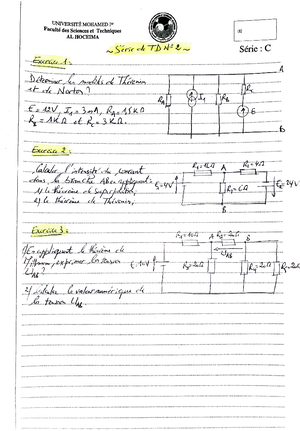 UNIVERSITÉ MOHAMED Iᵉʳ
Faculté des Sciences et Techniques
AL HOCEIMA
Série : C
~ Série de TD N° 2 ~
Exercice 1 :
Déterminer les modèles de Thévenin
et de Norton ?
E = 12V, I₁ = 3mA, R_A = 1,5KΩ
R_B = 1KΩ et R_C = 3KΩ.
A
R_A
R_B
R_C
E
B
Exercice 2 :
Calculer l'intensité du courant
dans la branche AB en appliquant :
1) le théorème de superposition,
2) le théorème de Thévenin.
A
B
Exercice 3 :
1) En appliquant le théorème de
Thévenin, exprimer la tension
U_AB ?
2) calculer la valeur numérique de
la tension U_AB.
A
B
U_AB